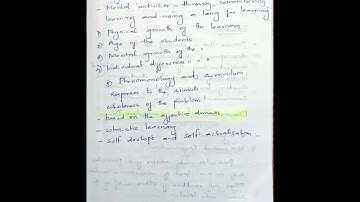 - Mental activities - thinking, remembering
learning and using a lang for learning
1) Physical growth of the learners
2) Age of the students
3) Mental growth of the "
4) Individual differences " "
⑧ Phenomenology and curriculum
response to the stimuli
wholeness of the problem
- based on the affective domain
- wholistic learning
- self devlopt and self actualisation